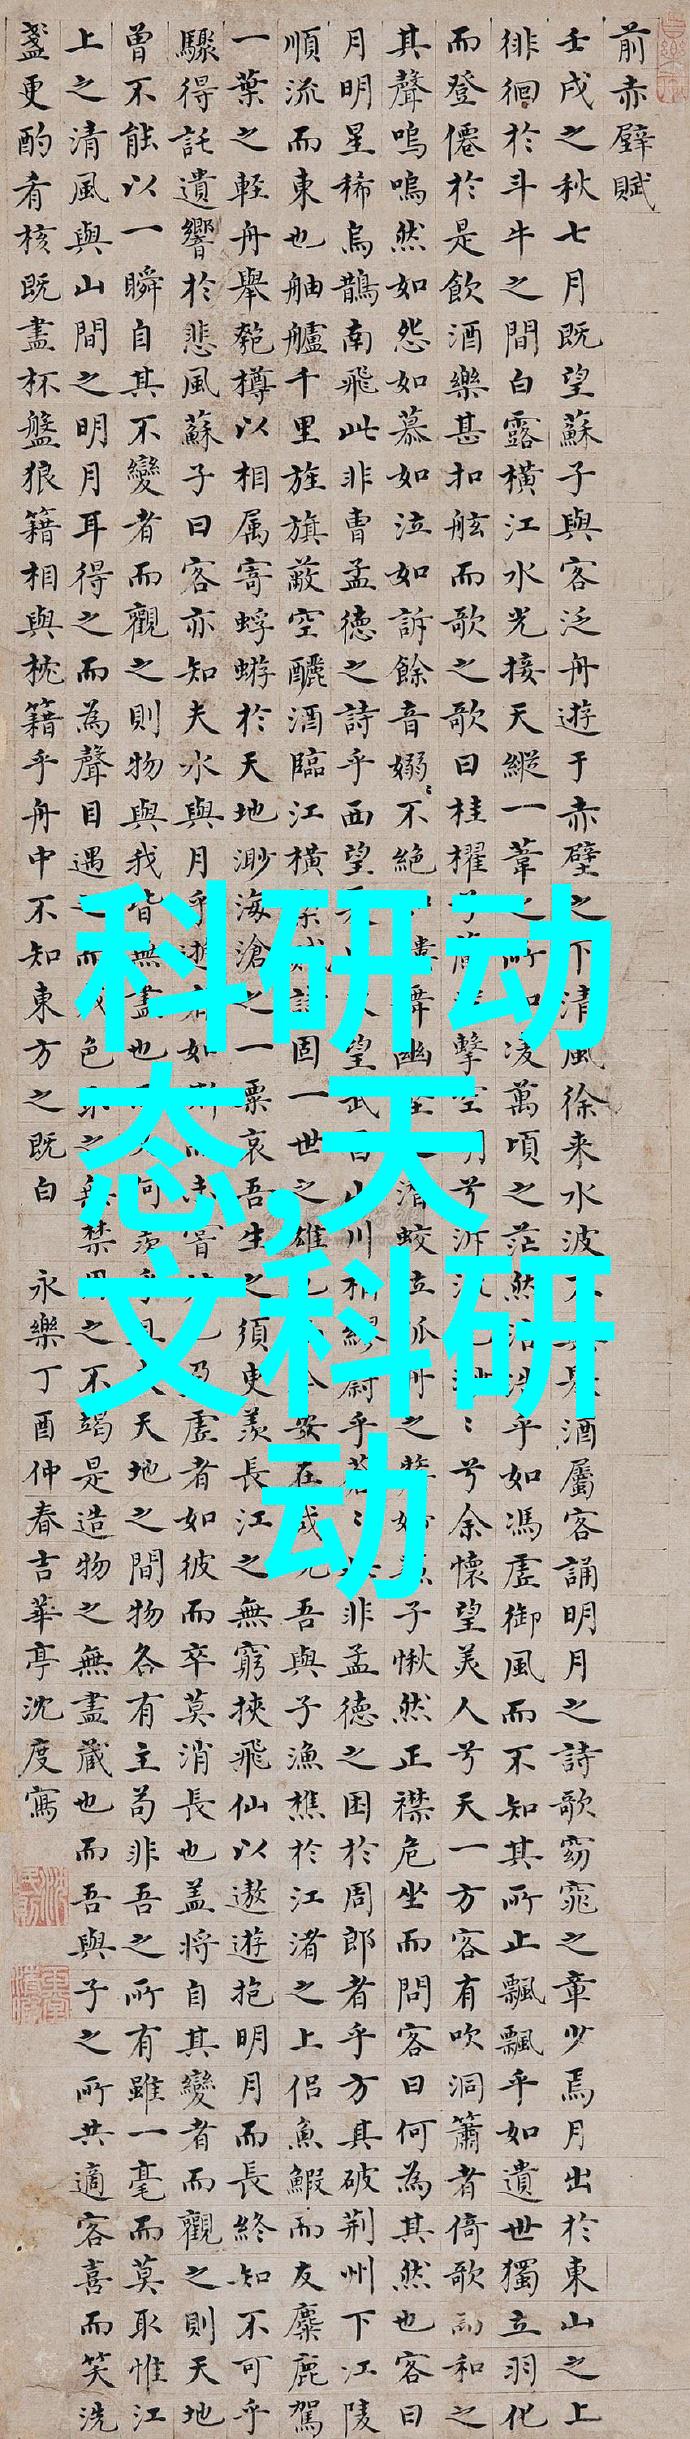 前赤壁賦
壬戌之秋七月既望蘇子與客泛舟遊于赤壁之下清風徐来水波酒屬客誦明月之詩歌窈窕之章少焉月出於東山之上
徘徊於斗牛之間白露橫江水光接天縱一葦之所如凌萬頃之茫然浩浩乎如馮虛御風而不知其所止飄飄乎如遺世獨立羽化
而登僊於是飲酒樂甚扣舷而歌之歌曰桂櫂兮擊空明兮泝〻兮余懷望美人兮天一方客有吹洞簫者倚歌而和之
其聲嗚嗚然如怨如慕如泣如訴餘音嫋〻不絕舞幽潛蛟泣孤舟之子愀然正襟危坐而問客曰何為其然也客曰
月明星稀烏鵲南飛此非曹孟德之詩乎西望望武昌山川相繆鬱乎蒼〻非孟德之困於周郎者乎方其破荊州下江陵
順流而東也舳艫千里旌旗蔽空釃酒臨江橫槊賦詩固一世之雄安在哉吾與子漁樵於江渚之上侶魚鰕而友麋鹿駕
一葉之輕舟舉匏樽以相属寄蜉蝣於天地渺海滄之一粟哀吾生之須臾羨長江之無窮挾飛仙以遨遊抱明月而長終知不可乎
驟得託遺響於悲風蘇子曰客亦知夫水與月乎逝者如斯而未嘗虛者如彼而卒莫消長也盖將自其變者而觀之則天地
曾不能以一瞬自其不變者而觀之則物與我皆無盡也何羨乎且夫天地之間物各有主苟非吾之所有雖一毫而莫取惟江
上之清風與山間之明月耳得之而為聲目遇之而成色取之無禁用之不竭是造物之無盡藏也而吾與子之所共適客喜而笑洗
盞更酌肴核既盡杯盤狼籍相與枕籍乎舟中不知東方之既白 永樂丁酉仲春吉華亭沈度寫
科研动
态,天
文科研
动